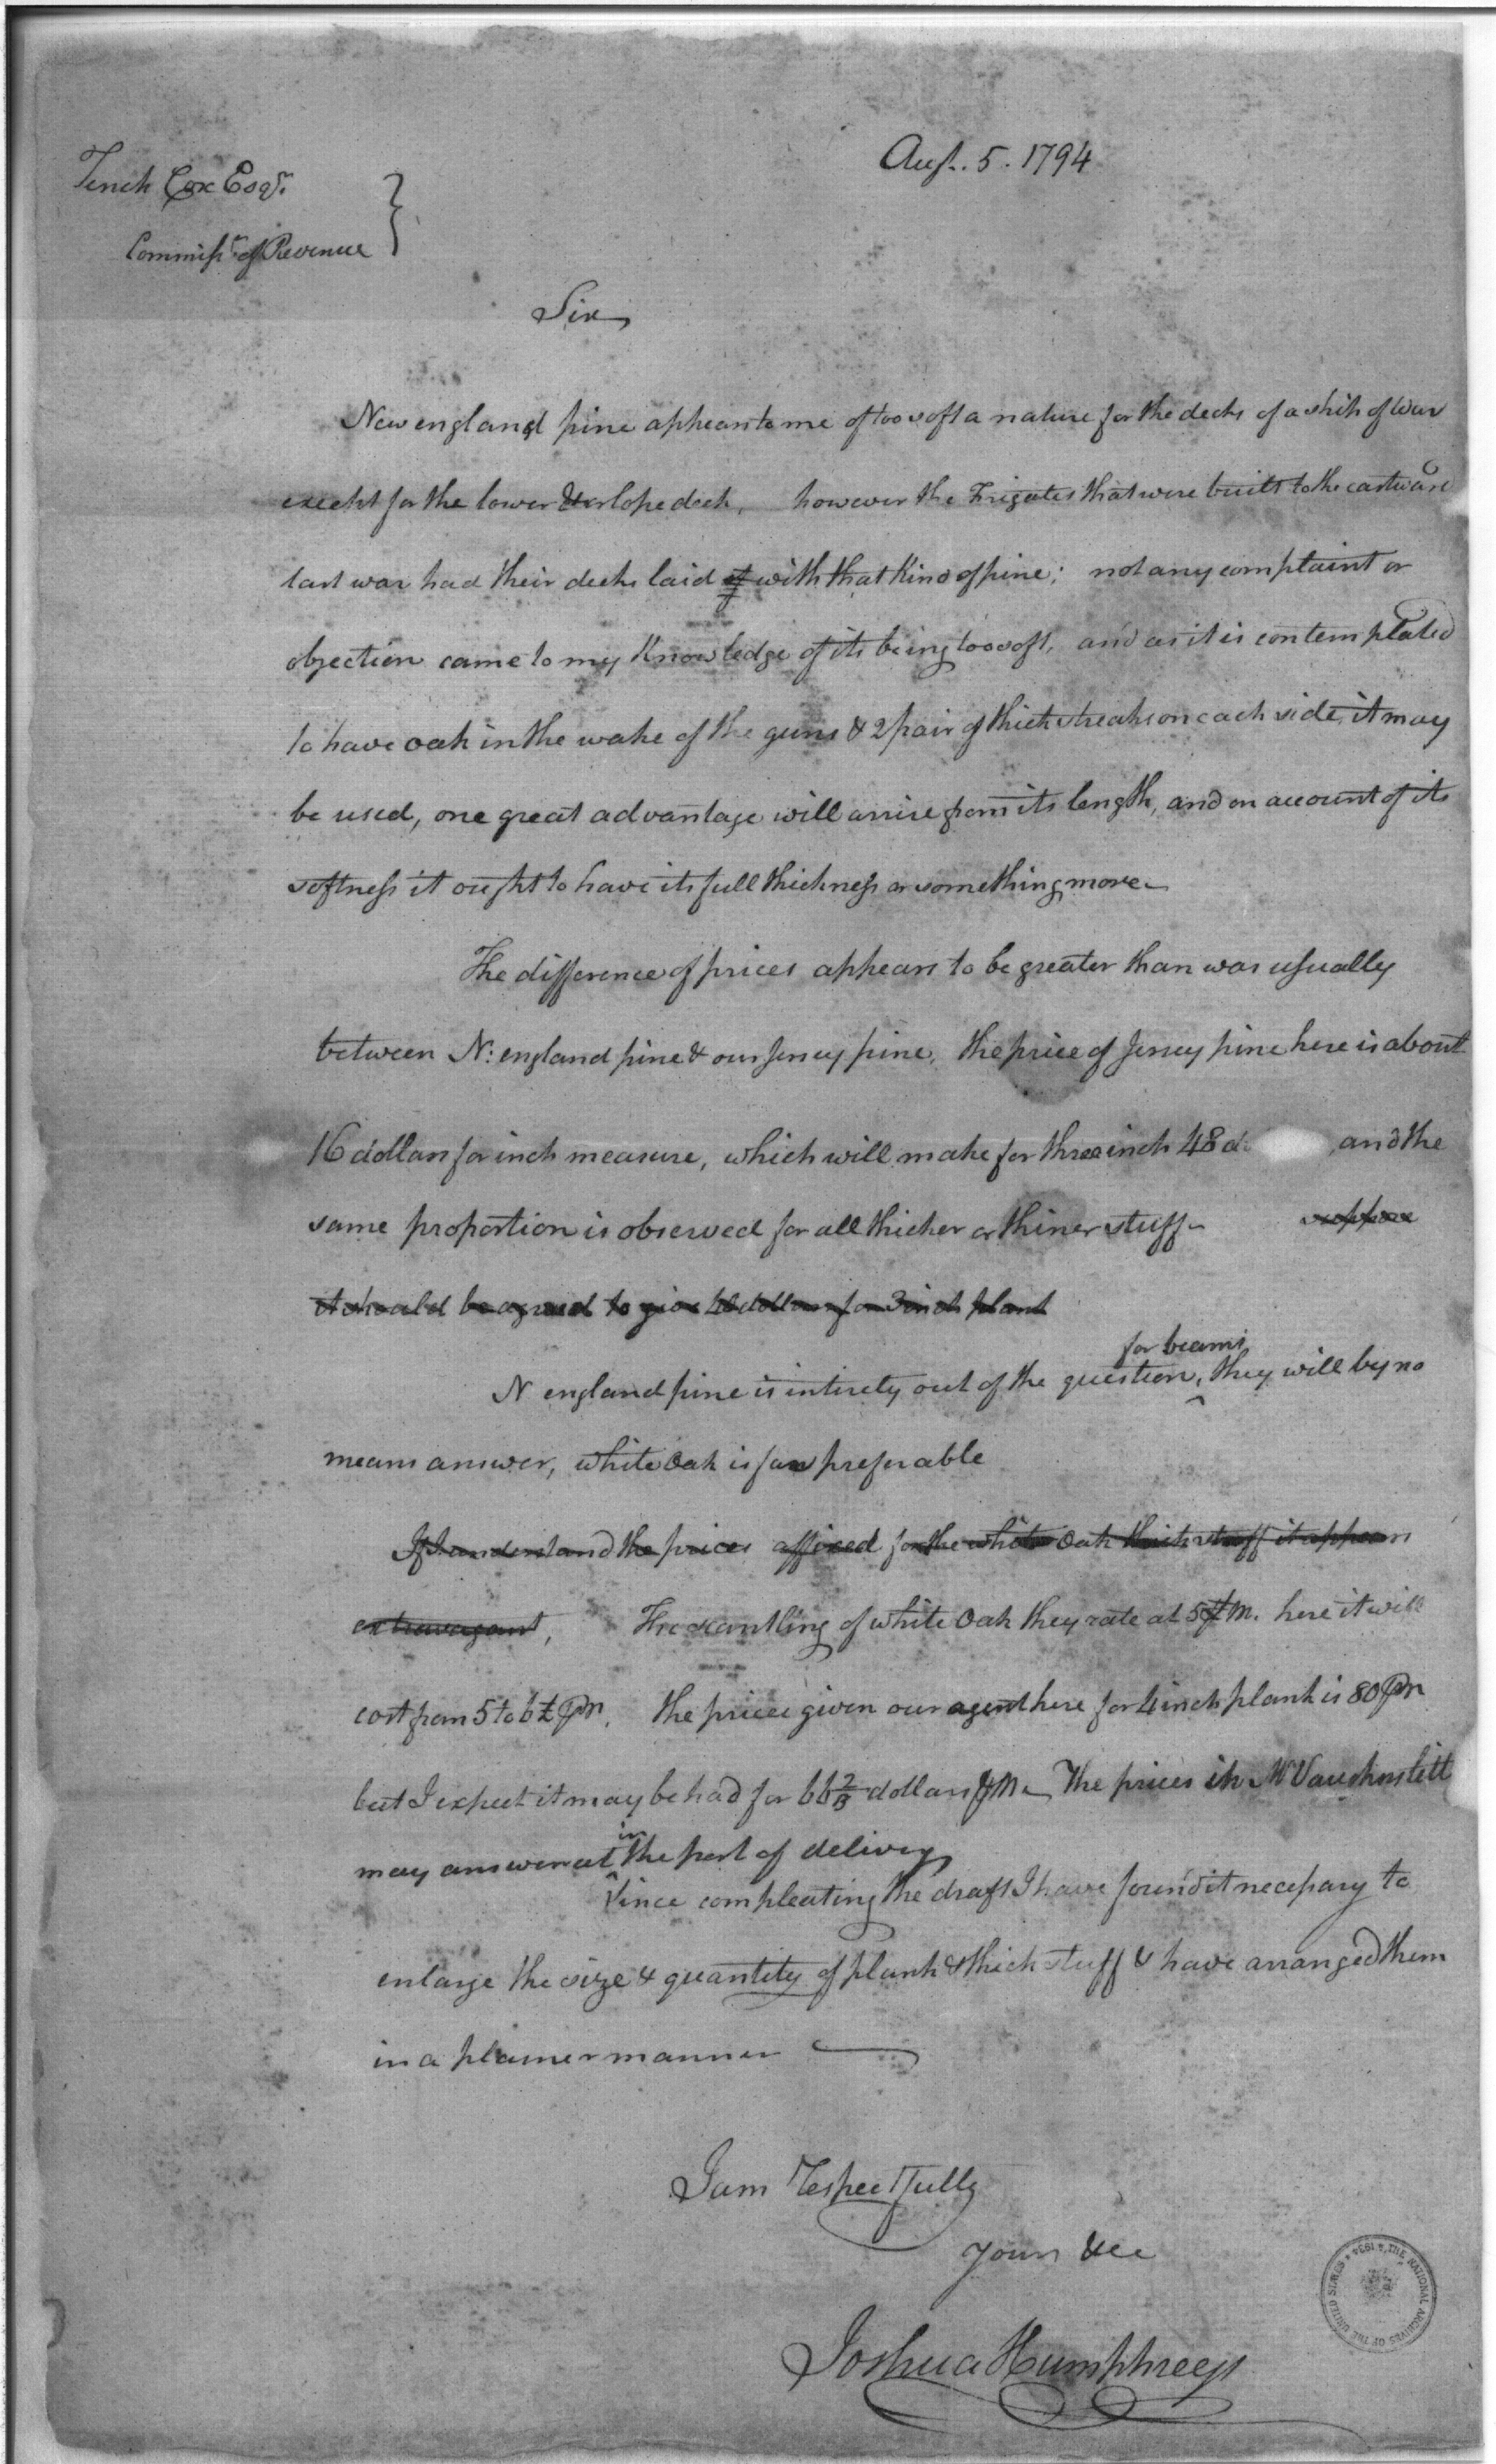 Augt. 5. 1794
Tench Cox Esqr.
Commissr. of Revenue
Sir
New england pine appears to me of too soft a nature for the decks of a ship of War
except for the lower & orlope deck, however the Frigates that were built to the eastward
last war had their decks laid of with that Kind of pine; not any complaint or
objection came to my Knowledge of its being too soft, and as it is contemplated
to have oak in the wake of the guns & 2 pair of thick streaks on each side, it may
be used, one great advantage will arrise from its length, and on account of its
softness it ought to have its full thickness or something more
The difference of prices appears to be greater than was usually
between N: england pine & our Jersey pine, the price of Jersey pine here is about
16 dollars for inch measure, which will make for three inch 48 d and the
same proportion is observed for all thicker or thiner stuff suppose
it should be agreed to give 40 dollars for 3 inch plank
for beams
N england pine is intirely out of the question, they will by no
means answer, white Oak is far preferable
If I understand the prices affixed for the white Oak thick stuff it appears
extravagant, The scantling of white Oak they rate at 5£ M. here it will
cost from 5 to 6£ P M, the prices given our agent here for 4 inch plank is 80 P M
but I expect it may be had for 66 2/3 dollars P M The prices in Mr Vaughns lett
in
may answer at the port of delivery
Since compleating the draft I have found it necessary to
enlarge the size & quantity of plank & thick stuff & have arranged them
in a plainer manner
I am Respectfully
Yours &cc
Joshua Humphreys
THE NATIONAL ARCHIVES OF THE UNITED STATES 1934